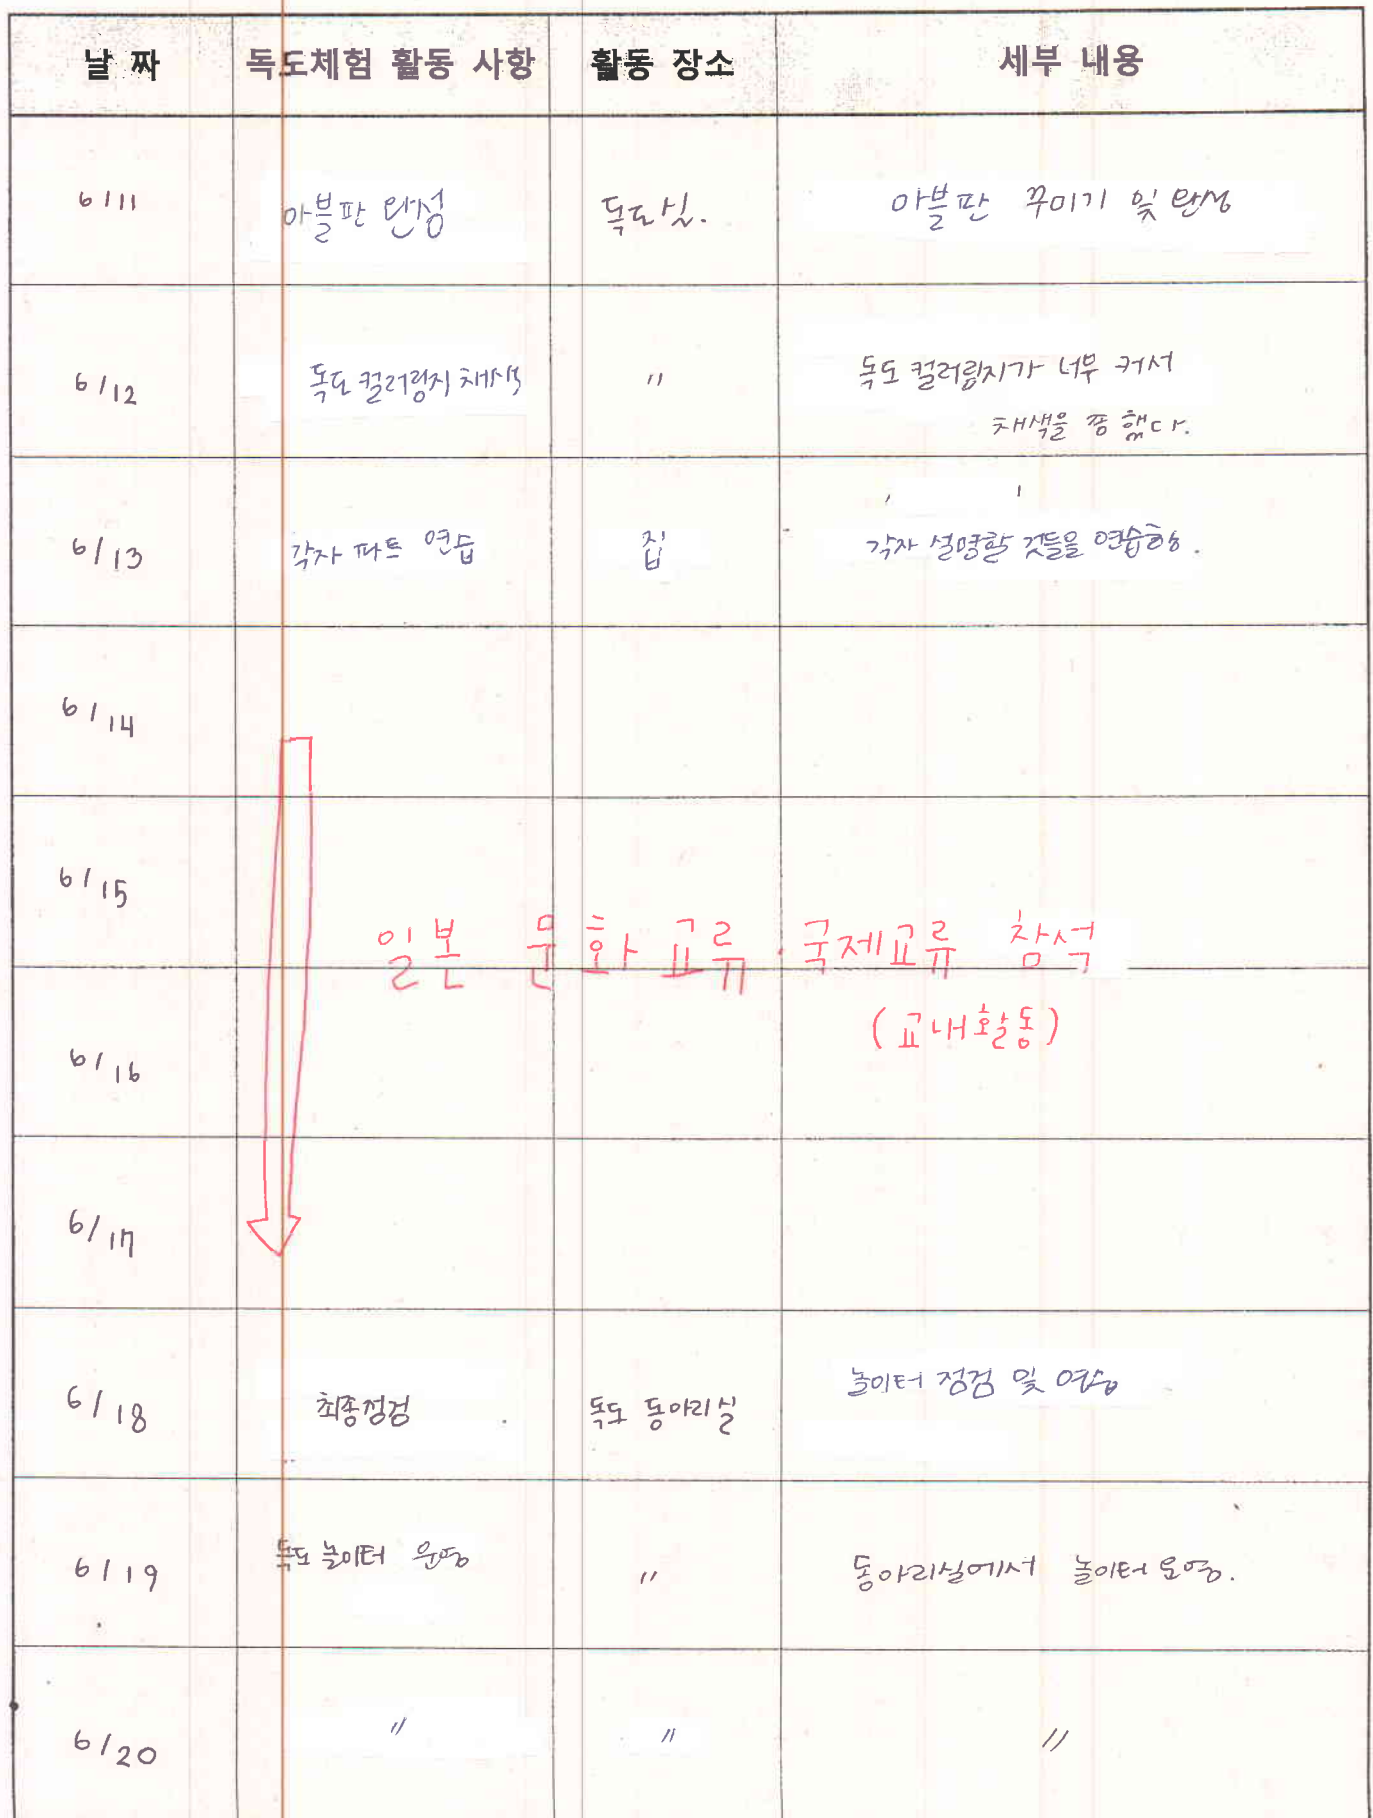 날 짜 독도체험 활동 사항 활동 장소 세부 내용
6/11 아블판 완성 독도실. 아블판 꾸미기 및 완성
6/12 독도 컬러링지 채색 〃 독도 컬러링지가 너무 커서
채색을 쫌 했다.
6/13 각자 파트 연습 집 각자 설명할 것들을 연습함.
6/14
6/15
일본 문화 교류·국제교류 참석
(교내활동)
6/16
6/17
6/18 최종점검 독도 동아리실 놀이터 점검 및 연습
6/19 독도 놀이터 운영 〃 동아리실에서 놀이터 운영.
6/20 〃 〃 〃